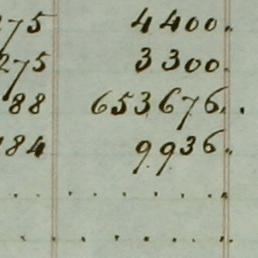 275 4400.
275 3300.
88 653676.
184 9936.